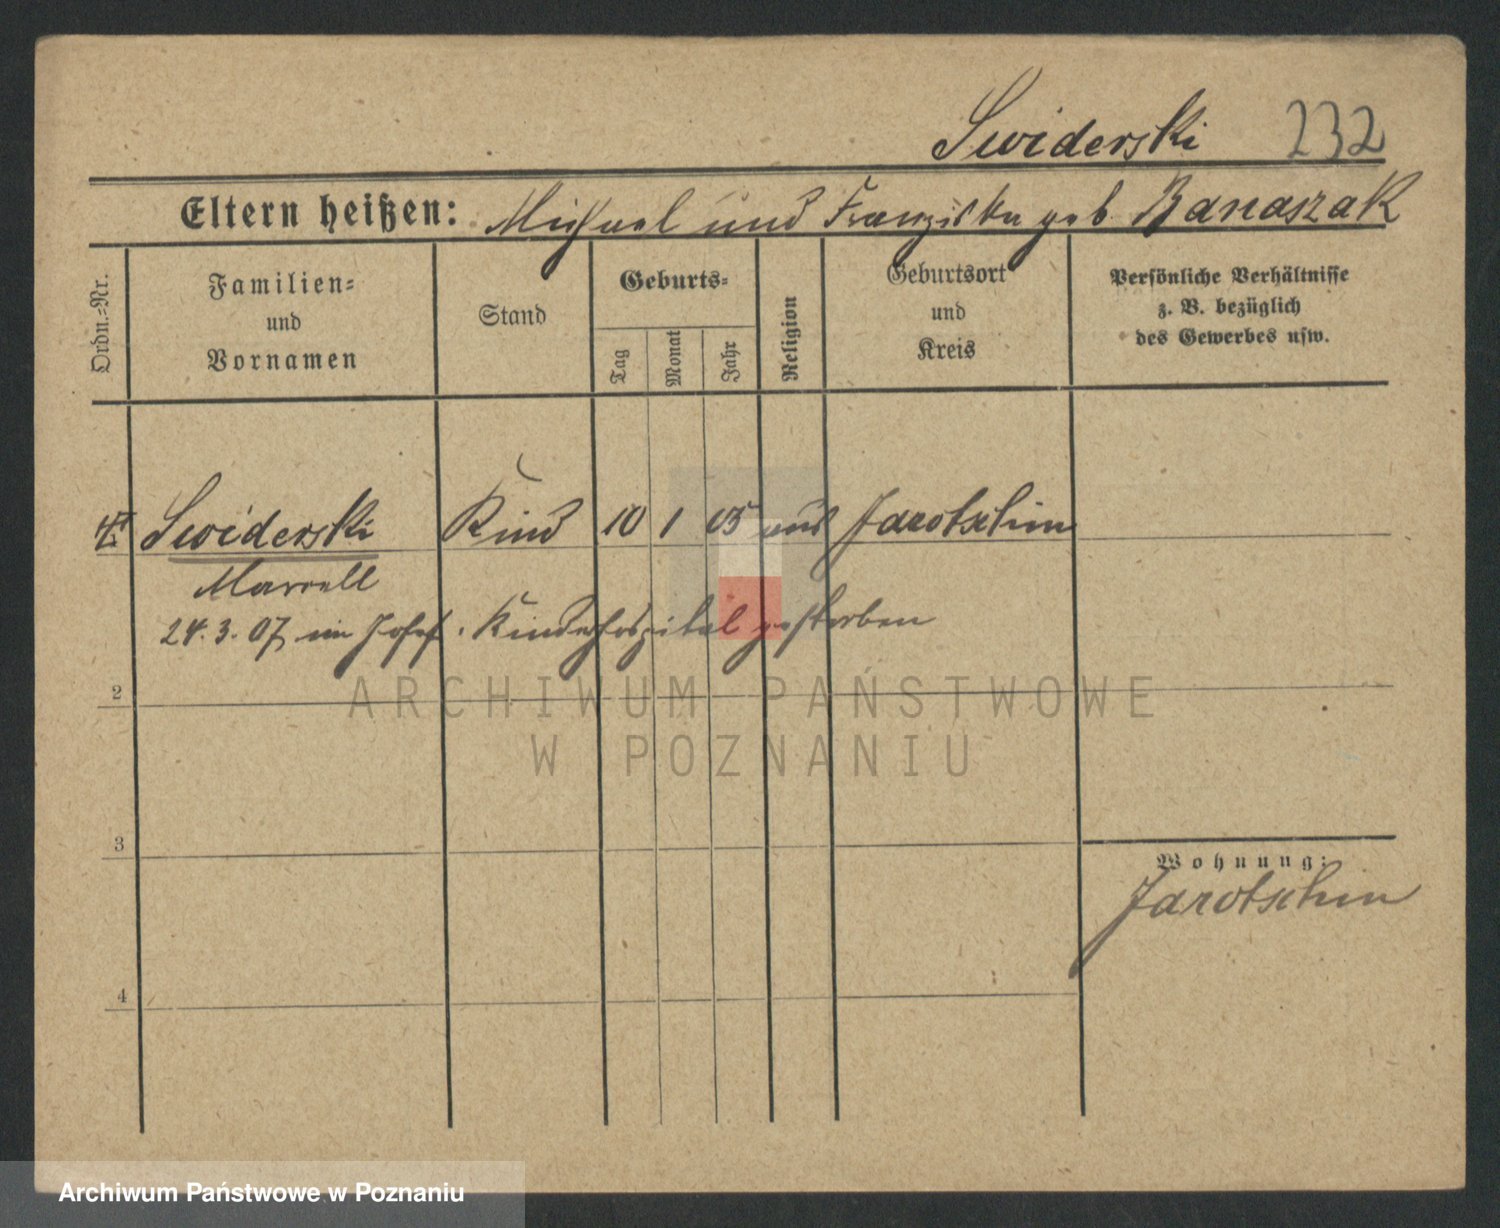 Swiderski 232
Eltern heißen: Michael und Franziska geb. Banaszak
Ordn.-Nr.
Familien-
und
Vornamen
Stand
Geburts-
Tag
Monat
Jahr
Religion
Geburtsort
und
Kreis
Persönliche Verhältnisse
z. B. bezüglich
des Gewerbes usw.
Swiderski Kind 10 1 05 Jarotschin
Marcell
24.3.07 im Josef. Kinderhospital gestorben
2
ARCHIWUM PAŃSTWOWE
W POZNANIU
3
Wohnung:
Jarotschin
4
Archiwum Państwowe w Poznaniu